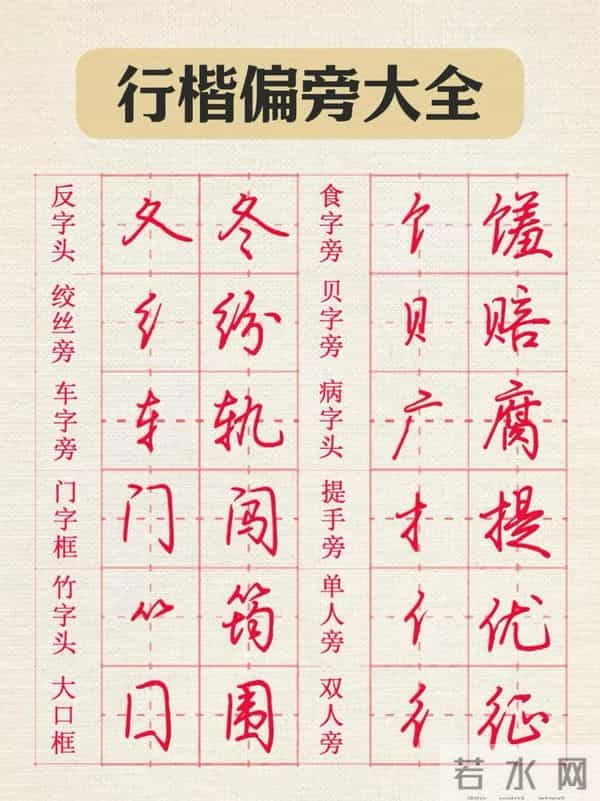 行楷偏旁大全
反字头 夂 冬 食字旁 饣 馐
绞丝旁 纟 纷 贝字旁 贝 赔
车字旁 车 轨 病字头 广 腐
门字框 门 闯 提手旁 扌 提
竹字头 ⺮ 筠 单人旁 亻 优
大口框 囗 围 双人旁 彳 征
若水网